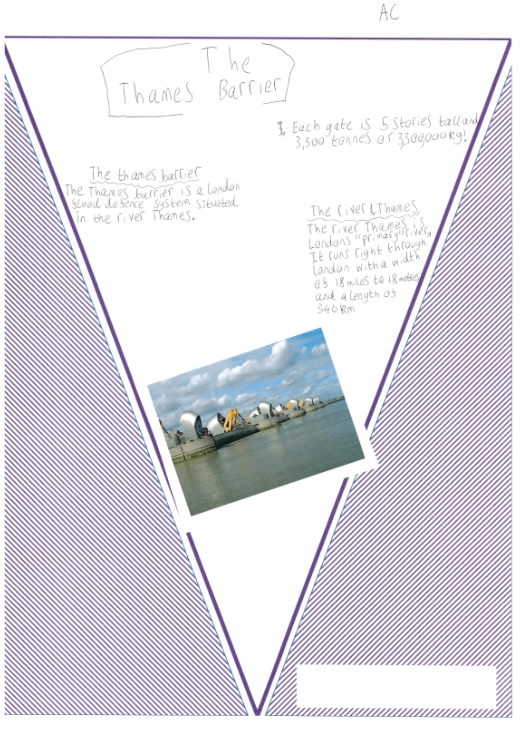 AC
The
Thames Barrier
Each gate is 5 Stories tall and
3,300 tonnes or 3300,000kg!
The thames barrier
The Thames barrier is a London
flood defence system situated
in the river Thames.
The river Thames
The river Thames is
Londons "primary" river,
It runs right through
London with a width
of 18 miles to 18 metres
and a length of
346 km